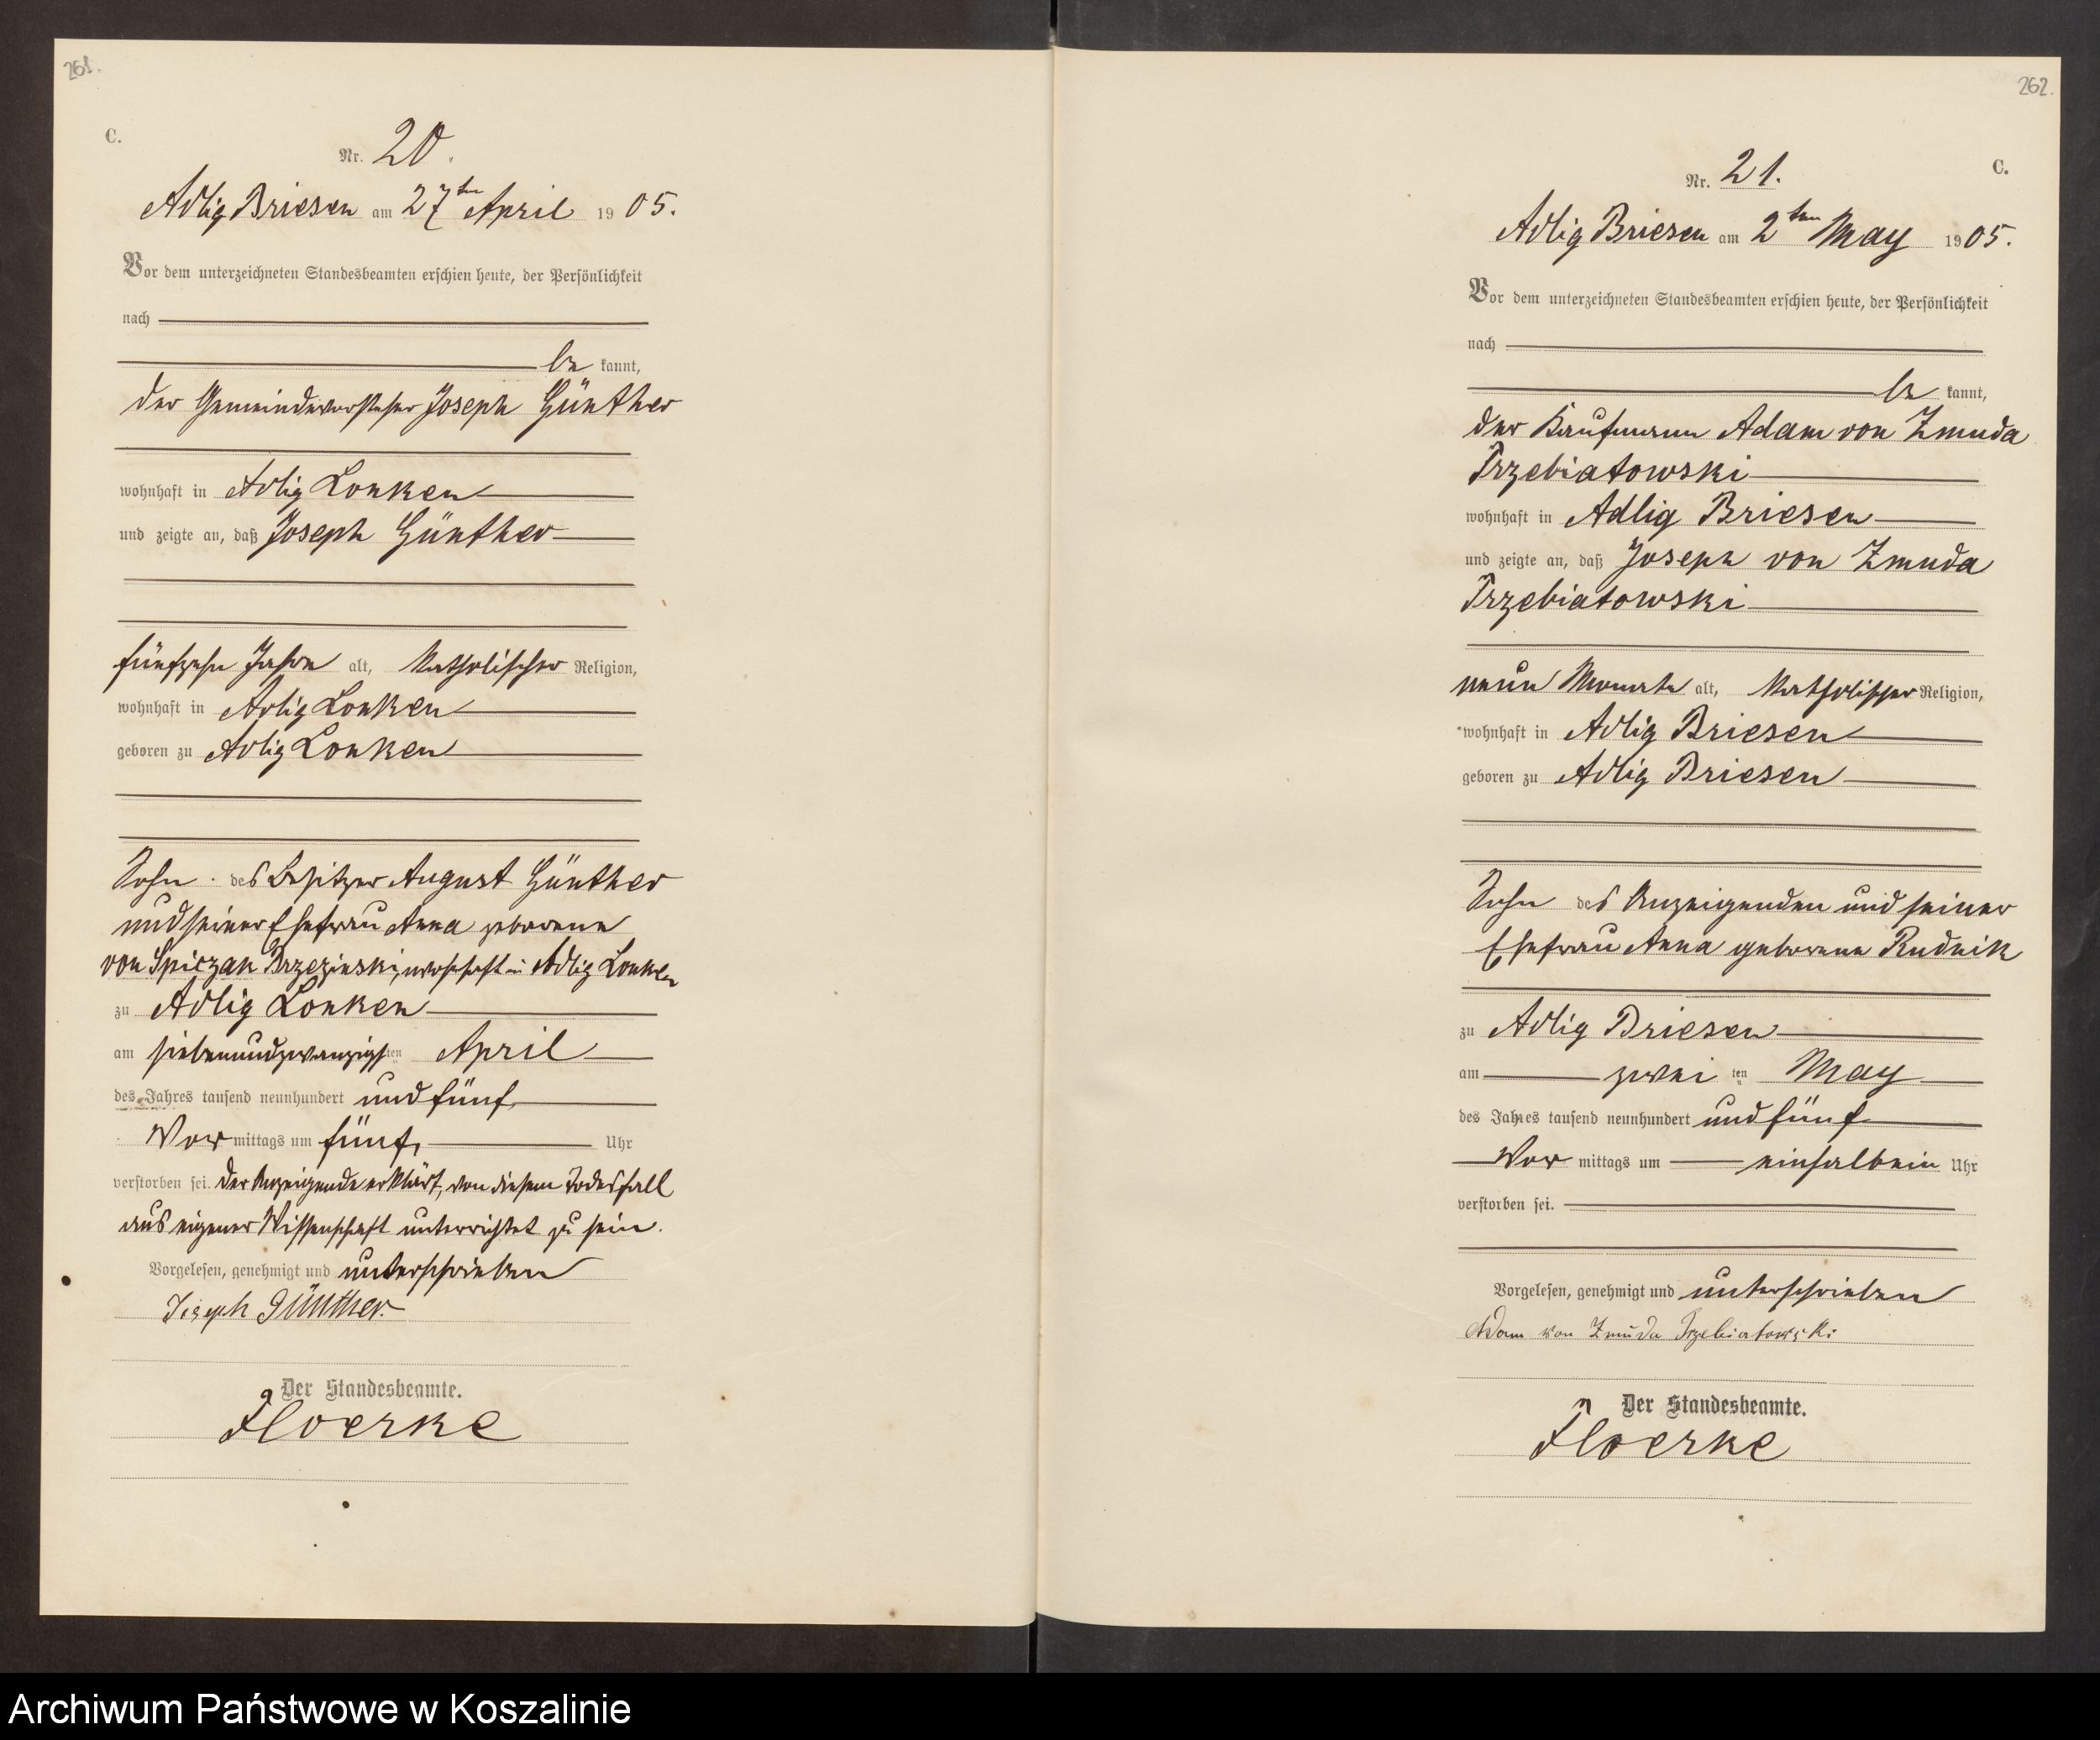 261.
C.
Nr. 20.
Adlig Briesen am 27ten April 1905.
Vor dem unterzeichneten Standesbeamten erschien heute, der Persönlichkeit
nach
be kannt,
der Gemeindevorsteher Joseph Günther
wohnhaft in Adlig Lonken
und zeigte an, daß Joseph Günther
fünfzehn Jahre alt, katholischer Religion,
wohnhaft in Adlig Lonken
geboren zu Adlig Lonken
Sohn des Besitzer August Günther
und seiner Ehefrau Anna geborene
von Spiczak Brzezinski, wohnhaft in Adlig Lonken
zu Adlig Lonken
am siebenundzwanzigsten April
des Jahres tausend neunhundert und fünf
Vor mittags um fünf Uhr
verstorben sei. Der Anzeigende erklärt, von diesem Todesfall
aus eigener Wissenschaft unterrichtet zu sein.
Vorgelesen, genehmigt und unterschrieben
Joseph Günther.
Der Standesbeamte.
Floerke
262.
C.
Nr. 21.
Adlig Briesen am 2ten May 1905.
Vor dem unterzeichneten Standesbeamten erschien heute, der Persönlichkeit
nach
be kannt,
der Kaufmann Adam von Zmuda
Trzebiatowski
wohnhaft in Adlig Briesen
und zeigte an, daß Joseph von Zmuda
Trzebiatowski
neun Monate alt, katholischer Religion,
wohnhaft in Adlig Briesen
geboren zu Adlig Briesen
Sohn des Anzeigenden und seiner
Ehefrau Anna geborene Rudnik
zu Adlig Briesen
am zwei ten May
des Jahres tausend neunhundert und fünf
Vor mittags um einhalbein Uhr
verstorben sei.
Vorgelesen, genehmigt und unterschrieben
Adam von Zmuda Trzebiatowski
Der Standesbeamte.
Floerke
Archiwum Państwowe w Koszalinie